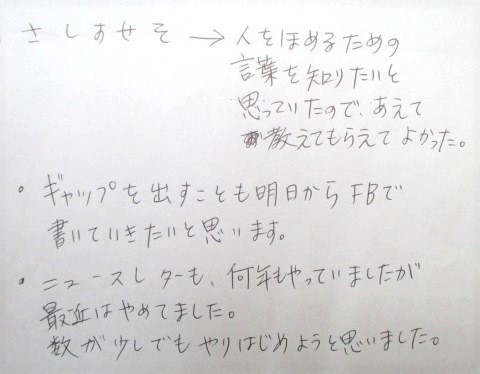 さしすせそ → 人をほめるための
言葉を知りたいと
思っていたので、あえて
教えてもらえてよかった。
・ギャップを出すことも明日からFBで
書いていきたいと思います。
・ニュースレターも、何年もやっていましたが
最近はやめてました。
数が少しでもやりはじめようと思いました。